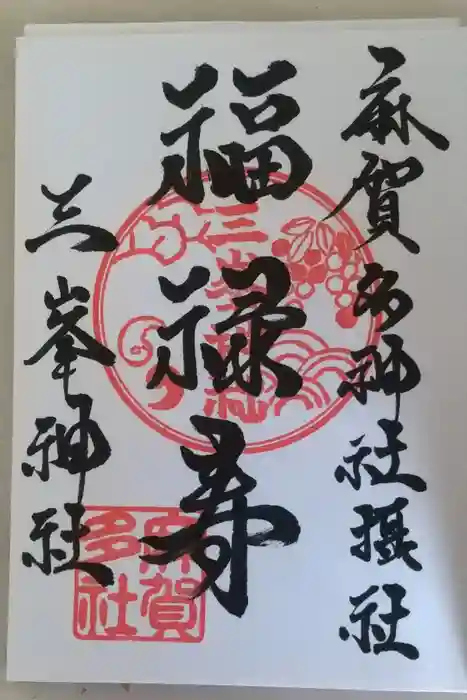 麻賀多神社摂社
福禄寿
三峯神社
三峯神社
麻賀多社